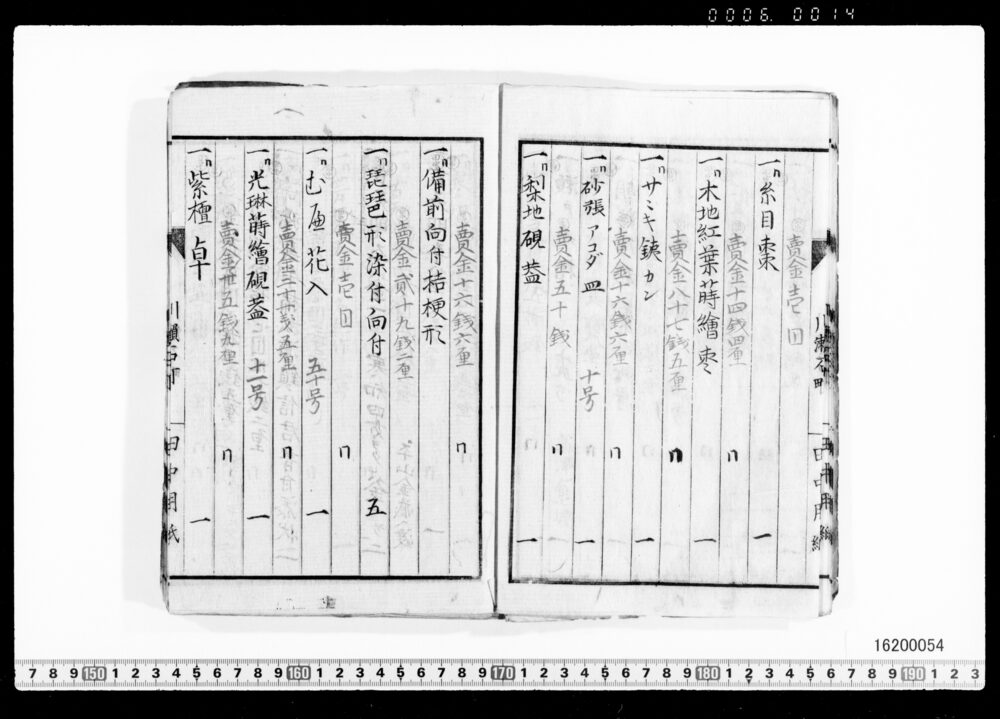 0006.0014
一〃 糸目棗 一
賣金壱円
一〃 木地紅葉蒔繪棗 一
賣金十四銭四厘 〃
一〃 サミキ銕カン 一
賣金八十七銭五厘 〃
一〃 砂張アコダ皿 十号 一
賣金十六銭六厘 〃
一〃 梨地硯蓋 一
賣金五十銭 〃
賣金十六銭六厘 〃
一〃 備前向付桔梗形
賣金貮十九銭二厘
一〃 琵琶形染付向付 五
賣金壱円 〃
一〃 花入 五十号 一
〃
一〃 光琳蒔繪硯蓋 十一号 一
賣金廿五銭九厘 〃
一〃 紫檀卓 一
16200054
7 8 9 150 1 2 3 4 5 6 7 8 9 160 1 2 3 4 5 6 7 8 9 170 1 2 3 4 5 6 7 8 9 180 1 2 3 4 5 6 7 8 9 190 1 2 3